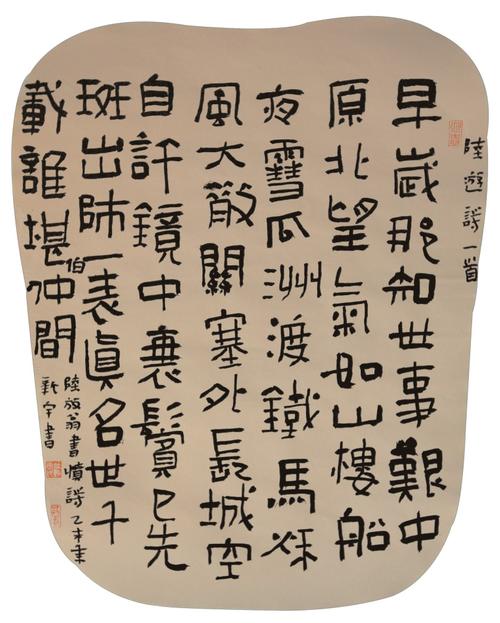 陸遊詩一首
早歲那知世事艱中
原北望氣如山樓船
夜雪瓜洲渡鐵馬秋
風大散關塞外長城空
自許鏡中衰鬢已先
斑出師一表眞名世千
載誰堪伯仲間
陸放翁書憤詩乙未年
新宇書